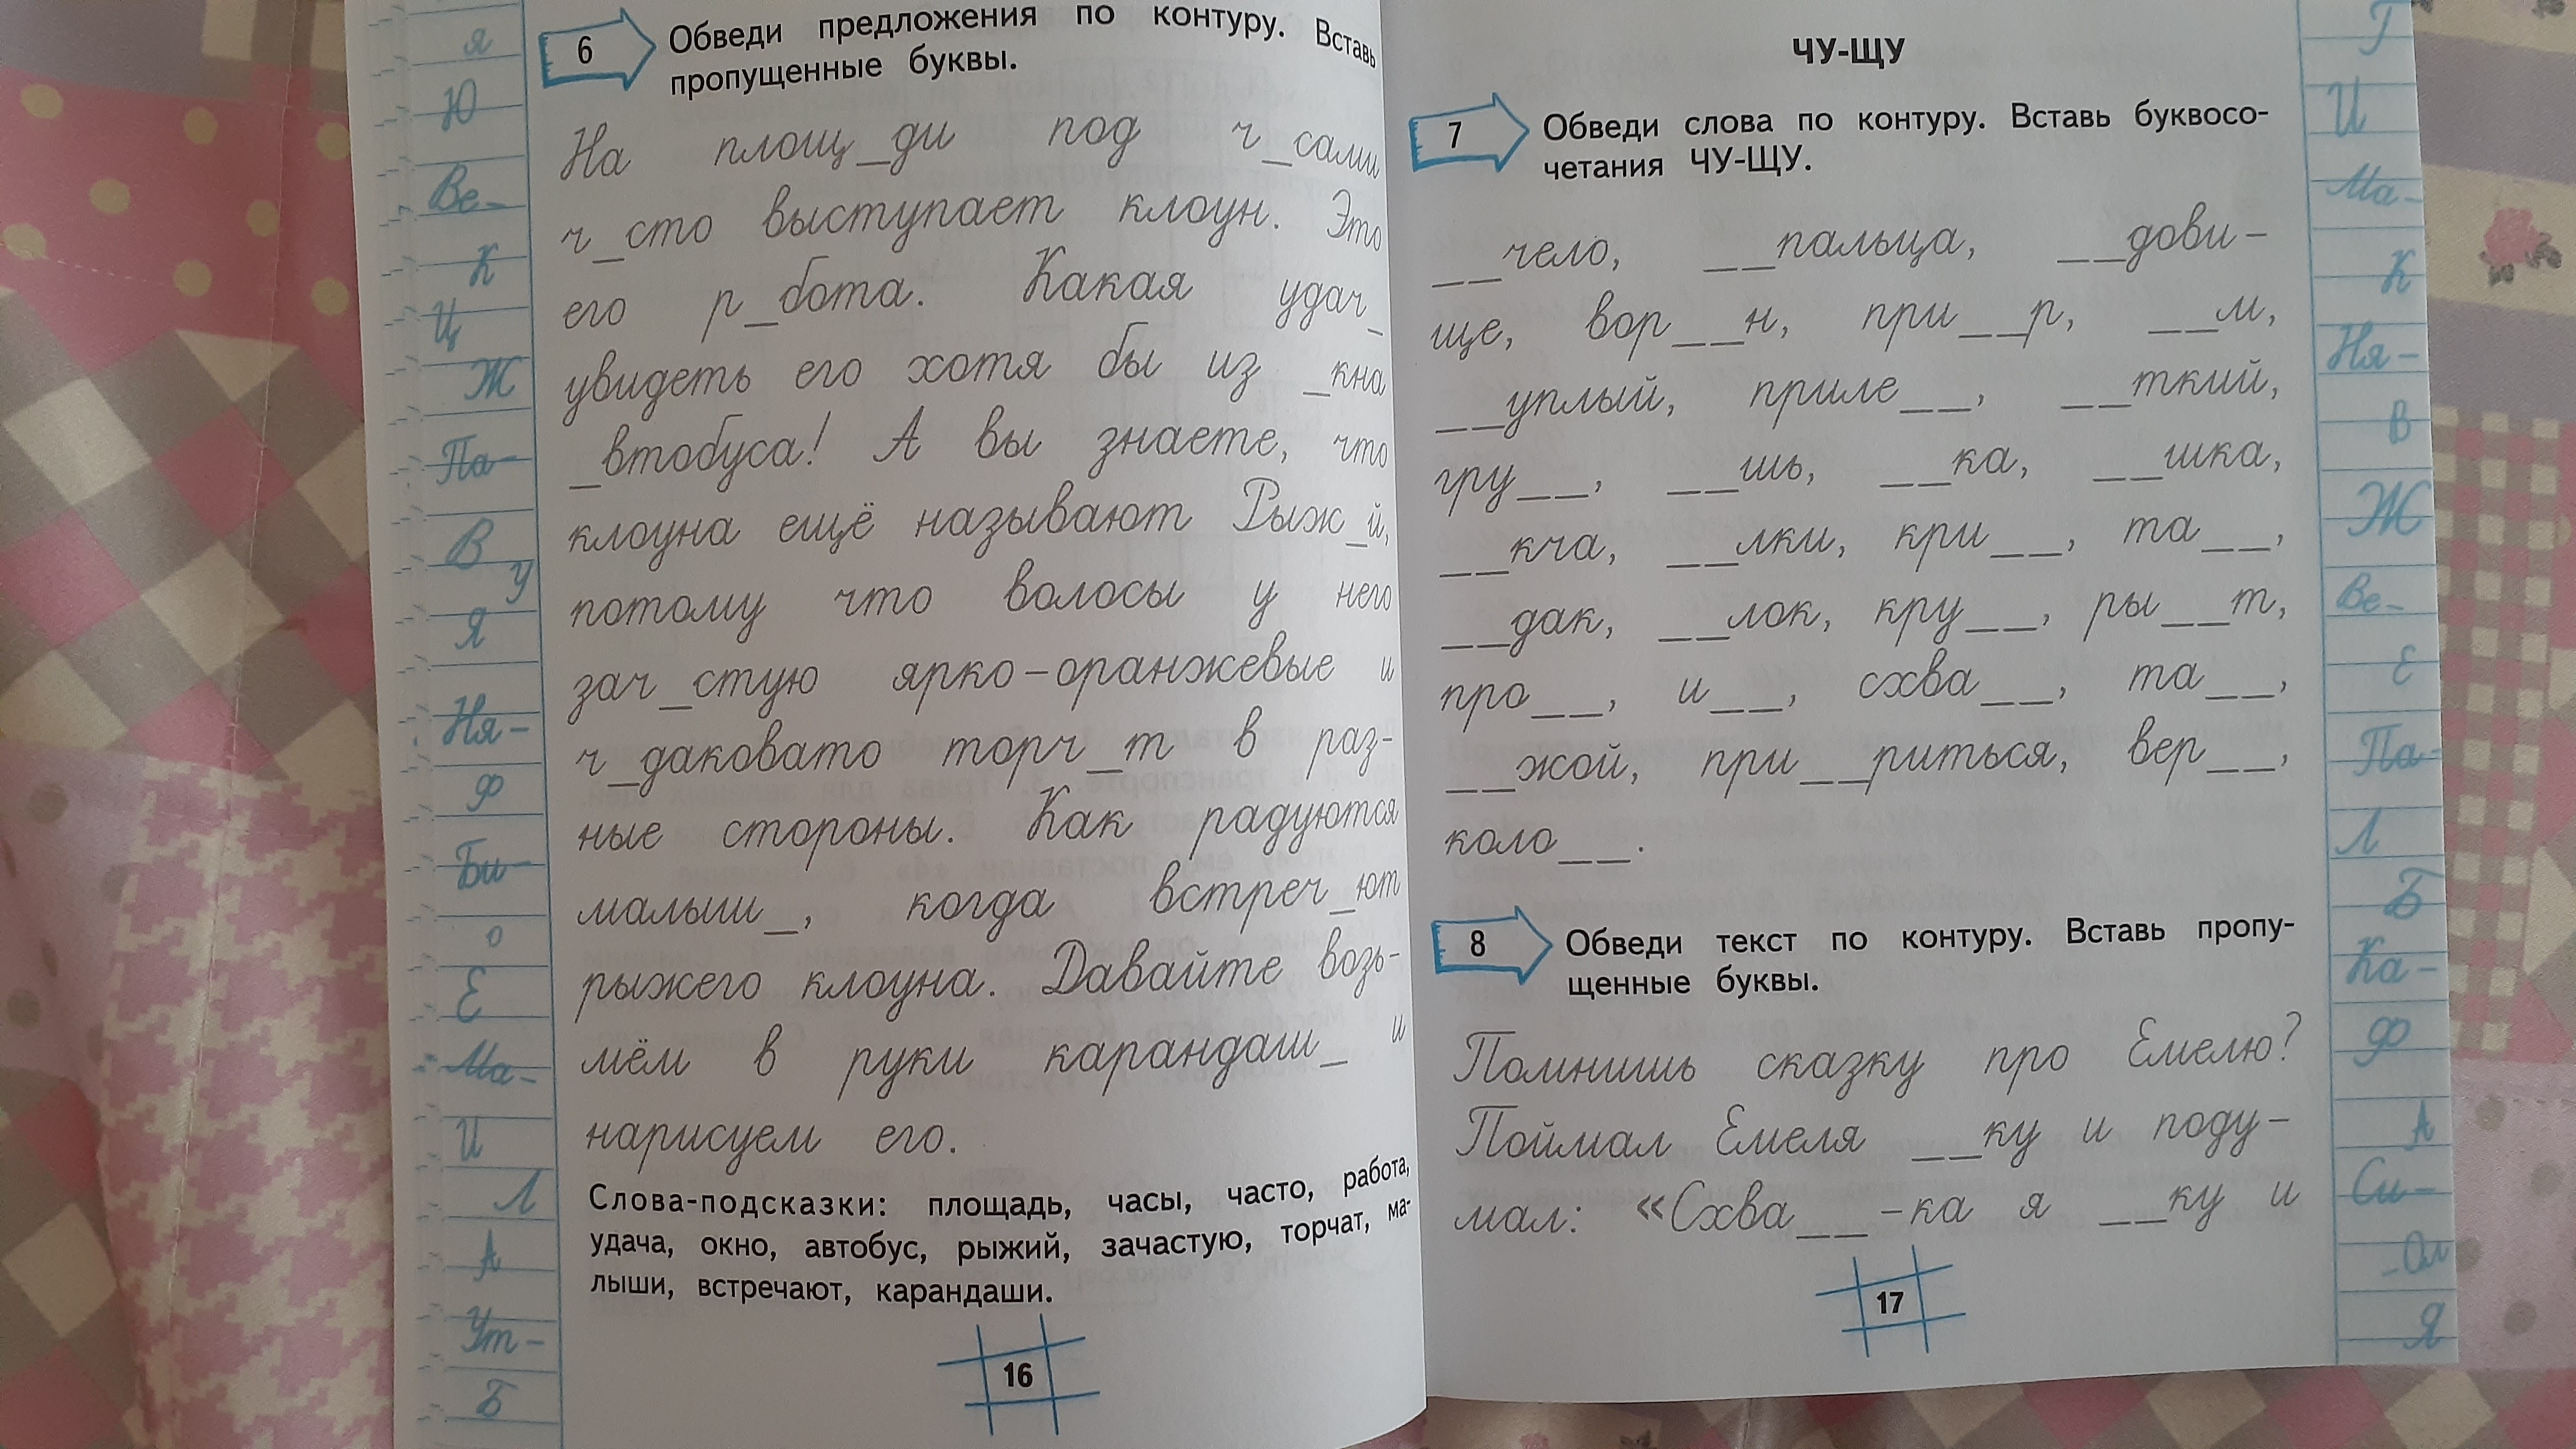 6 Обведи предложения по контуру. Вставь
пропущенные буквы.
На площ_ди под ч_сами
ч_сто выступает клоун. Это
его р_бота. Какая удач_
увидеть его хотя бы из _кна
_втобуса! А вы знаете, что
клоуна ещё называют Рыж_й,
потому что волосы у него
зач_стую ярко-оранжевые и
ч_даковато торч_т в раз-
ные стороны. Как радуются
малыш_, когда встреч_ют
рыжего клоуна. Давайте возь-
мём в руки карандаш_ и
нарисуем его.
Слова-подсказки: площадь, часы, часто, работа,
удача, окно, автобус, рыжий, зачастую, торчат, ма-
лыши, встречают, карандаши.
16
я
Ю
Ве-
К
Ц
Ж
Па-
В
У
Я
Ня-
Ф
Би-
о
Е
Ма-
И
Л
А
Ут-
Б
ЧУ-ЩУ
7 Обведи слова по контуру. Вставь буквосо-
четания ЧУ-ЩУ.
__чело, __пальца, __дови-
ще, вор__н, при__р, __м,
__уплый, приле__, __ткий,
гру__, __шь, __ка, __шка,
__кча, __лки, кри__, та__,
__дак, __лок, кру__, ры__т,
про__, и__, схва__, та__,
__жой, при__риться, вер__,
коло__.
8 Обведи текст по контуру. Вставь пропу-
щенные буквы.
Помнишь сказку про Емелю?
Поймал Емеля __ку и поду-
мал: «Схва__-ка я __ку и
17
Г
И
Ма-
К
Ня-
В
Ж
Ве-
Е
Па-
Л
Б
Ка-
Ф
А
Си-
Я